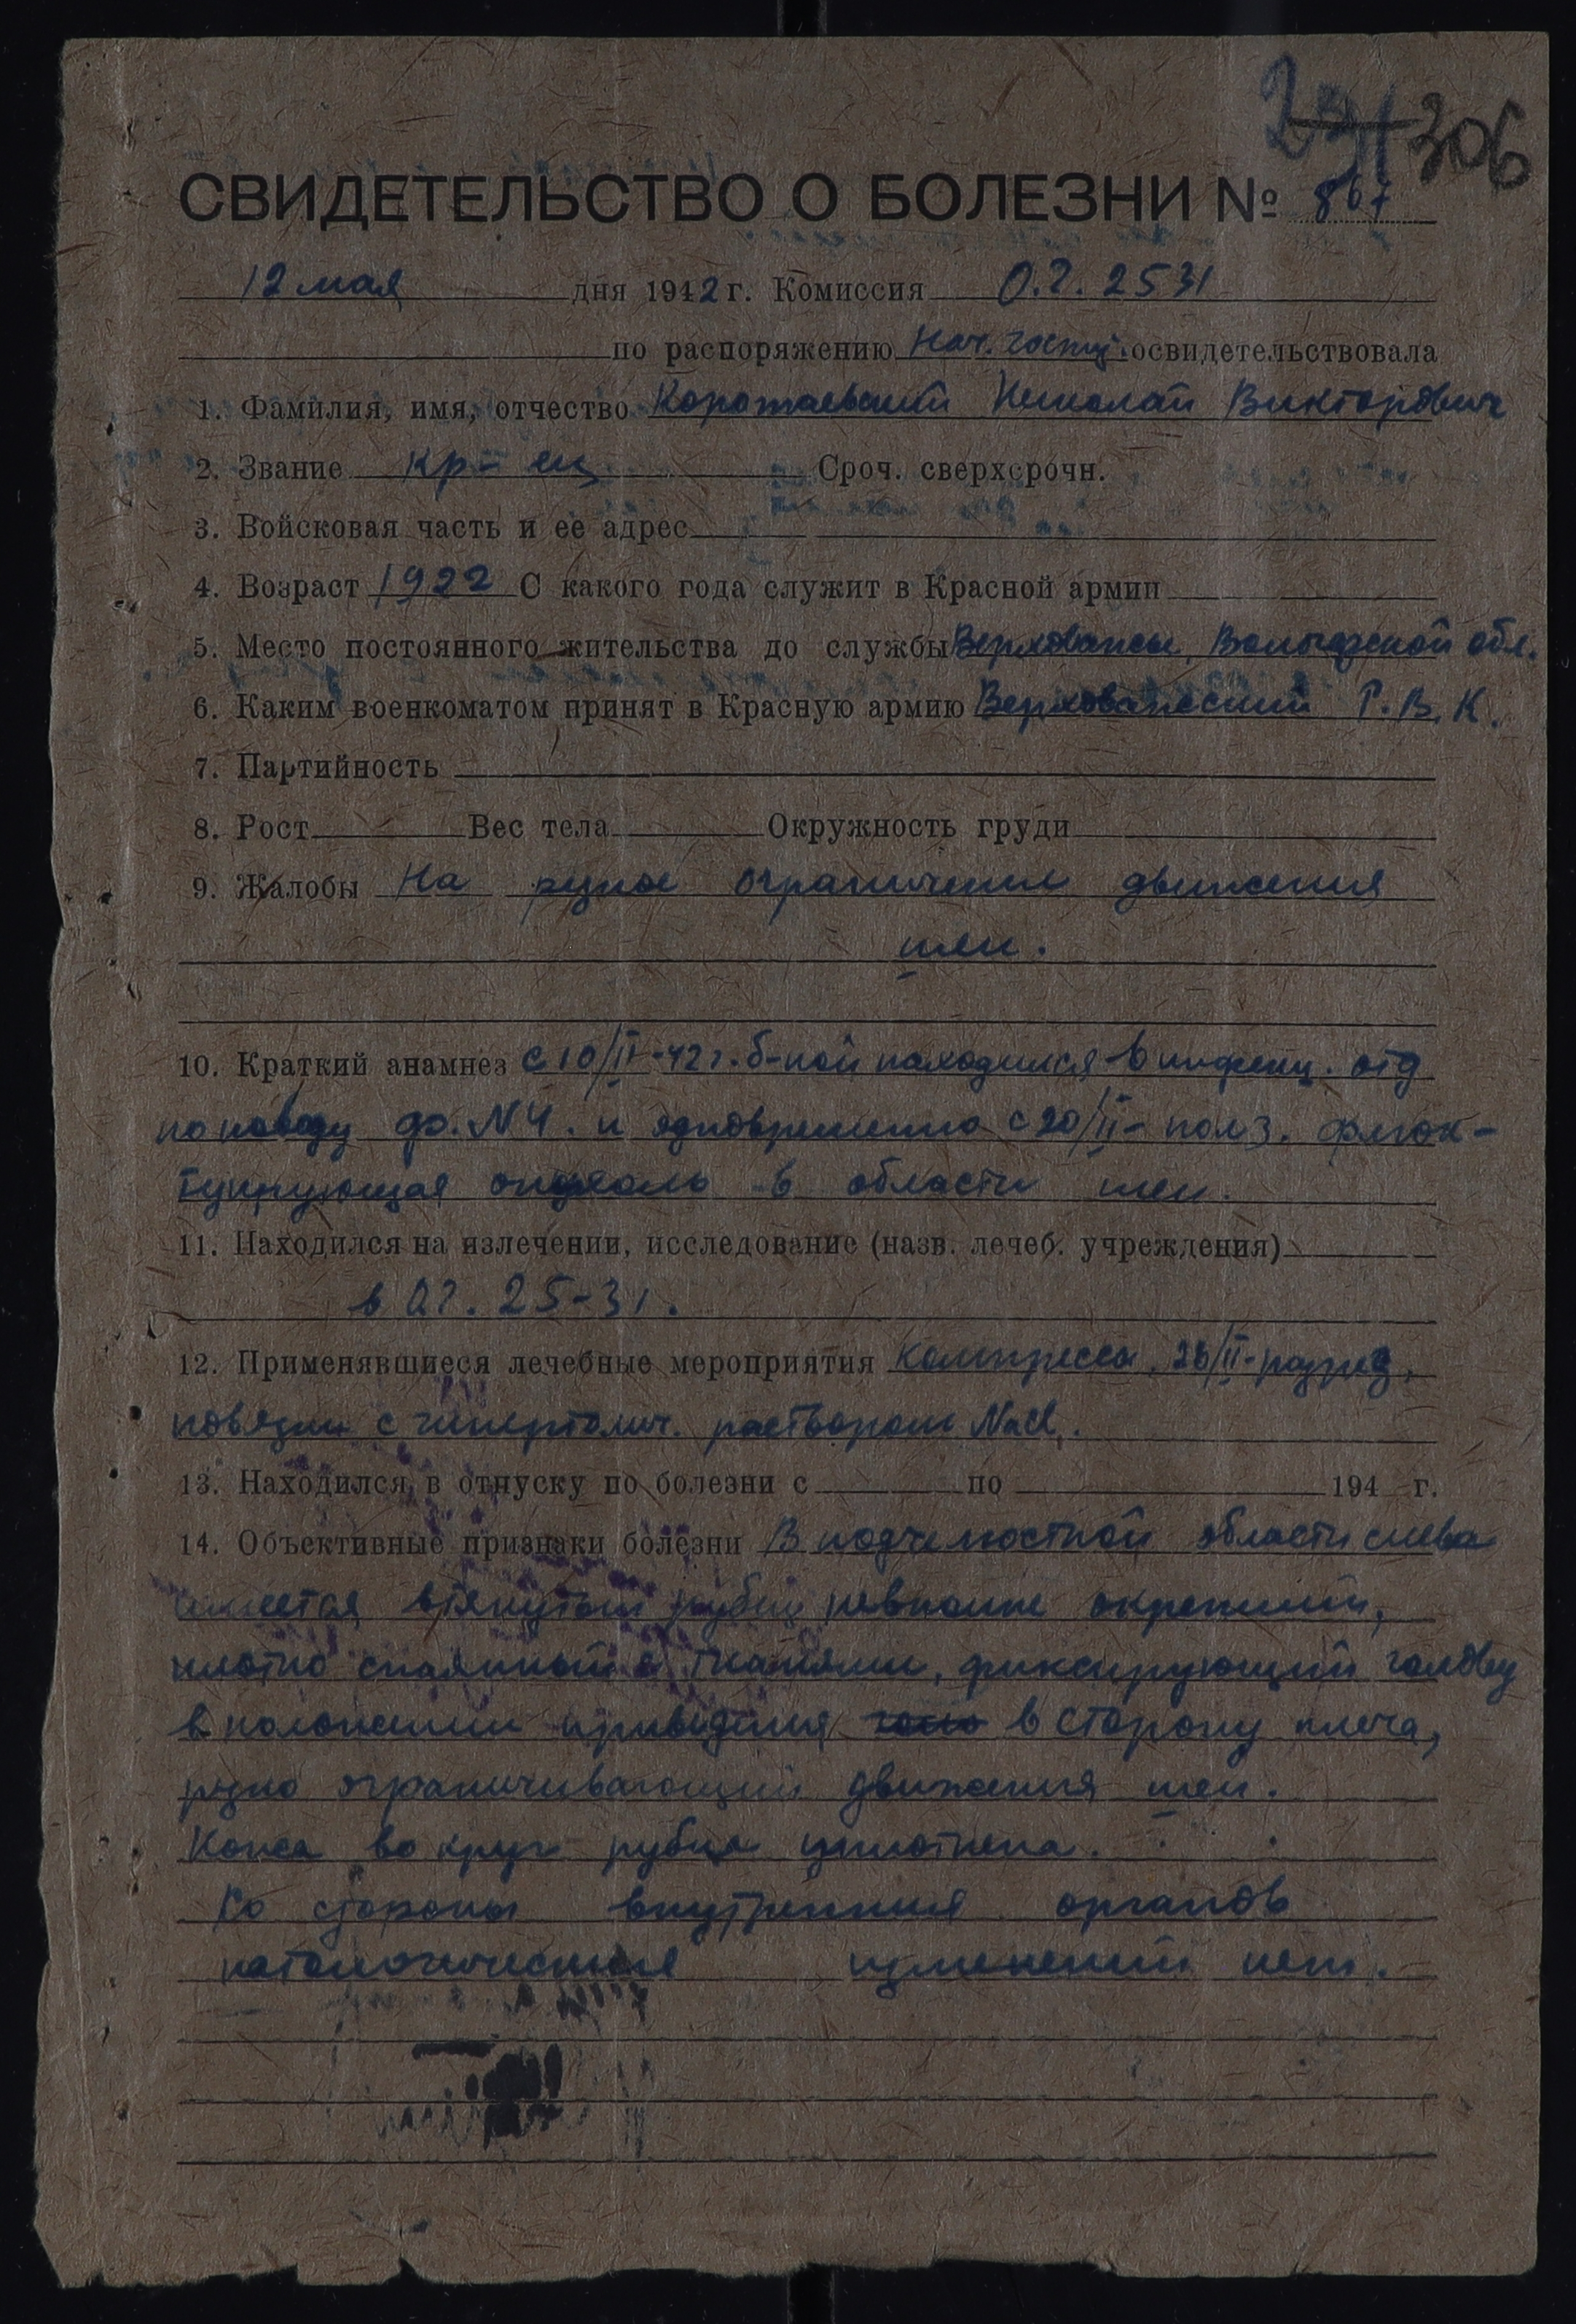 306
СВИДЕТЕЛЬСТВО О БОЛЕЗНИ № 867
12 мая дня 1942 г. Комиссия О.Г. 2531
по распоряжению Нач. госпит. освидетельствовала
1. Фамилия, имя, отчество Коротаевский Николай Викторович
2. Звание кр-ец Сроч. сверхсрочн.
3. Войсковая часть и ее адрес
4. Возраст 1922 С какого года служит в Красной армии
5. Место постоянного жительства до службы Верховажск, Вологодской обл.
6. Каким военкоматом принят в Красную армию Верховажский Р.В.К.
7. Партийность
8. Рост Вес тела Окружность груди
9. Жалобы На резкое ограничение движения
шеи.
10. Краткий анамнез с 10/II-42 г. б-ной находился в инфекц. отд
по поводу ф. N4. и одновременно с 20/II- флюк-
туирующая опухоль в области шеи.
11. Находился на излечении, исследование (назв. лечеб. учреждения)
в О.Г. 25-31.
12. Применявшиеся лечебные мероприятия компрессы, 26/II-разрез,
повязки с гипертонич. раствором NaCl.
13. Находился в отпуску по болезни с по 194 г.
14. Объективные признаки болезни В подчелюстной области слева
имеется втянутый рубец невполне окрепший,
плотно спаянный с тканями, фиксирующий голову
в положении приведения в сторону плеча,
резко ограничивающий движения шеи.
Кожа вокруг рубца уплотнена.
Со стороны внутренних органов
патологических изменений нет.